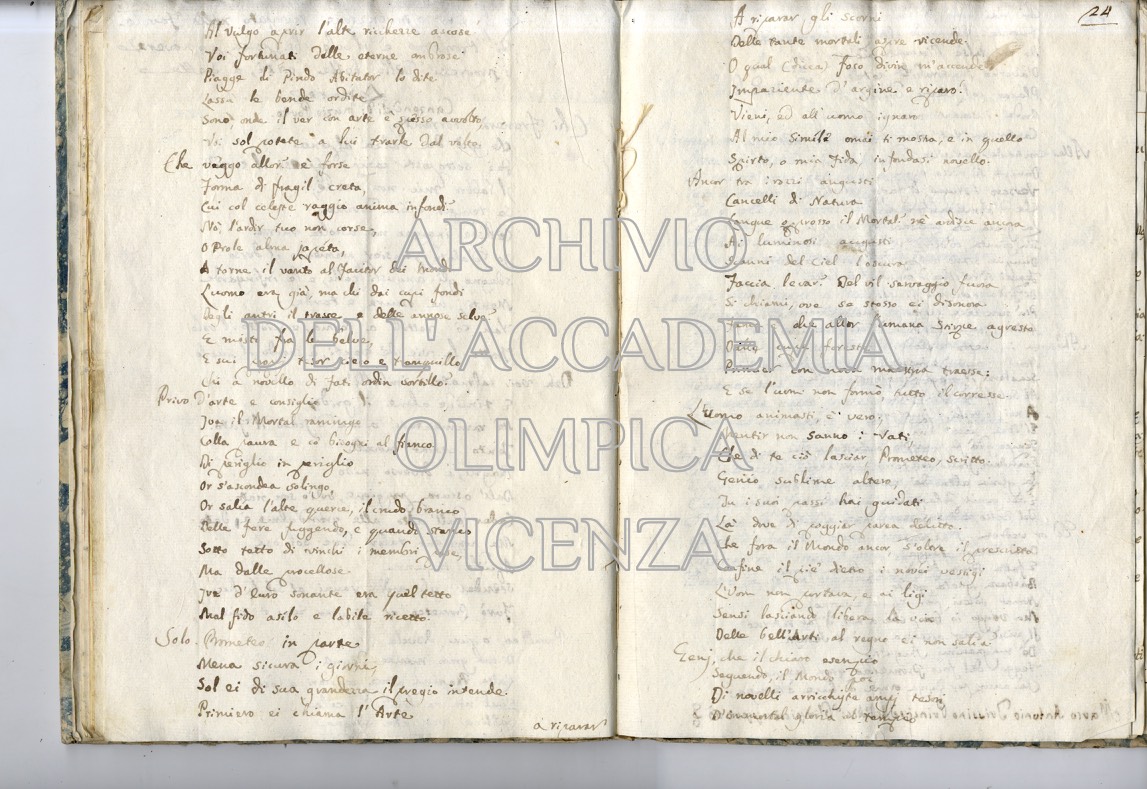 Al vulgo aprir l'alte ricchezze ascose.
Voi fortunati delle eterne ambrose
Piagge di Pindo Abitator lo dite
Lassù le bende ordite
Sono, onde il ver con arte è spesso avvolto
Voi sol potete a lui trarle dal volto
Che veggo allor! e forse
Forma di fragil creta,
Cui col celeste raggio anima infondi
No, l'ardir tuo non corse,
O Prole alma
A torne il vanto al Fautor dei Mondi
L'uomo era già, ma chi dai cupi fondi
Degli antri il trasse, e delle annose selve
E misto fra le belve,
E sui
Chi a novello di fati ordin sortillo.
Privo d'arte e consiglio
Iva il Mortal ramingo
Colla paura e co' bisogni al fianco
Di periglio in periglio
Or s'ascondea solingo,
Or salia l'alte querce, il crudo branco
Delle fere fuggendo, e quando stanco
Sotto tetto di vinchi i membri
Ma dalle procellose
Ire d'Euro sonante era quel tetto
Mal fido asilo e labile ricetto.
Solo Prometeo in parte
Mena sicura i giorni,
Sol ei di sua grandezza il pregio intende
Primiero ei chiama l'Arte
a riparar
24
A riparar gli scorni
Delle tante mortali aspre vicende.
O qual (Duca) foco divin m'accende
Impaziente d'argine e riparo.
Vieni, ed all'uomo ignaro
Al mio Simile omai ti mostra, e in quello
Spirto, o mia fida, infondasi novello.
Ancor tra i rozzi angusti
Cancelli di Natura
Langue oppresso il Mortal nè ardisce ancora
Ai luminosi augusti
Scanni del Ciel l'oscura
Faccia levar. Del vil servaggio fuora
Si chiami, ove se stesso ei disonora
che allor l'umana Stirpe agreste
Prandier con nova maestria traesse;
E se l'uom non formò tutto il corresse.
L'Uomo animasti, è vero;
Mentir non sanno i Vati,
Che di te ciò lasciar Prometeo, scritto.
Genio sublime altero,
Tu i suoi passi hai guidati
Là dove il poggiar parea delitto.
Che fora il Mondo ancor, s'oltre il prescritto
Confine il piè dietro i novei vestigi
L'Uom non portava, e ai ligi
Sensi lasciando libera la via
Delle bell'Arti al regno ei non salia
Genj, che il chiaro esempio
Seguendo, il Mondo poi
Di novelli arricchiste ampj tesori
D'immortal gloria al tempio
ARCHIVIO
DELL'ACCADEMIA
OLIMPICA
VICENZA